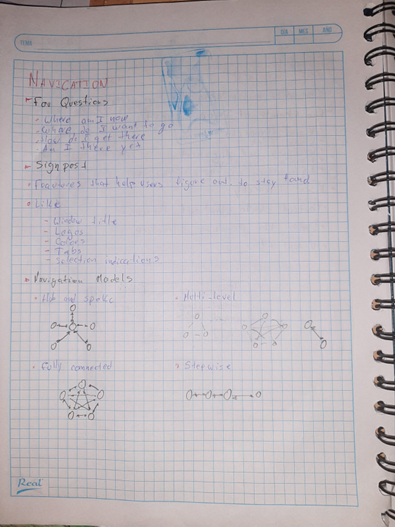 TEMA DIA MES AÑO
NAVIGATION
- Four Questions
- Where am I now
- Where do I want to go
- How do I get there
- Am I there yet
- Signpost
• Features that help users figure out to stay
• Like
- Window title
- Logos
- Colors
- Tabs
- Selection indications
• Navigation Models
• Hub and spoke • Multi level
• Fully connected • Stepwise
Real